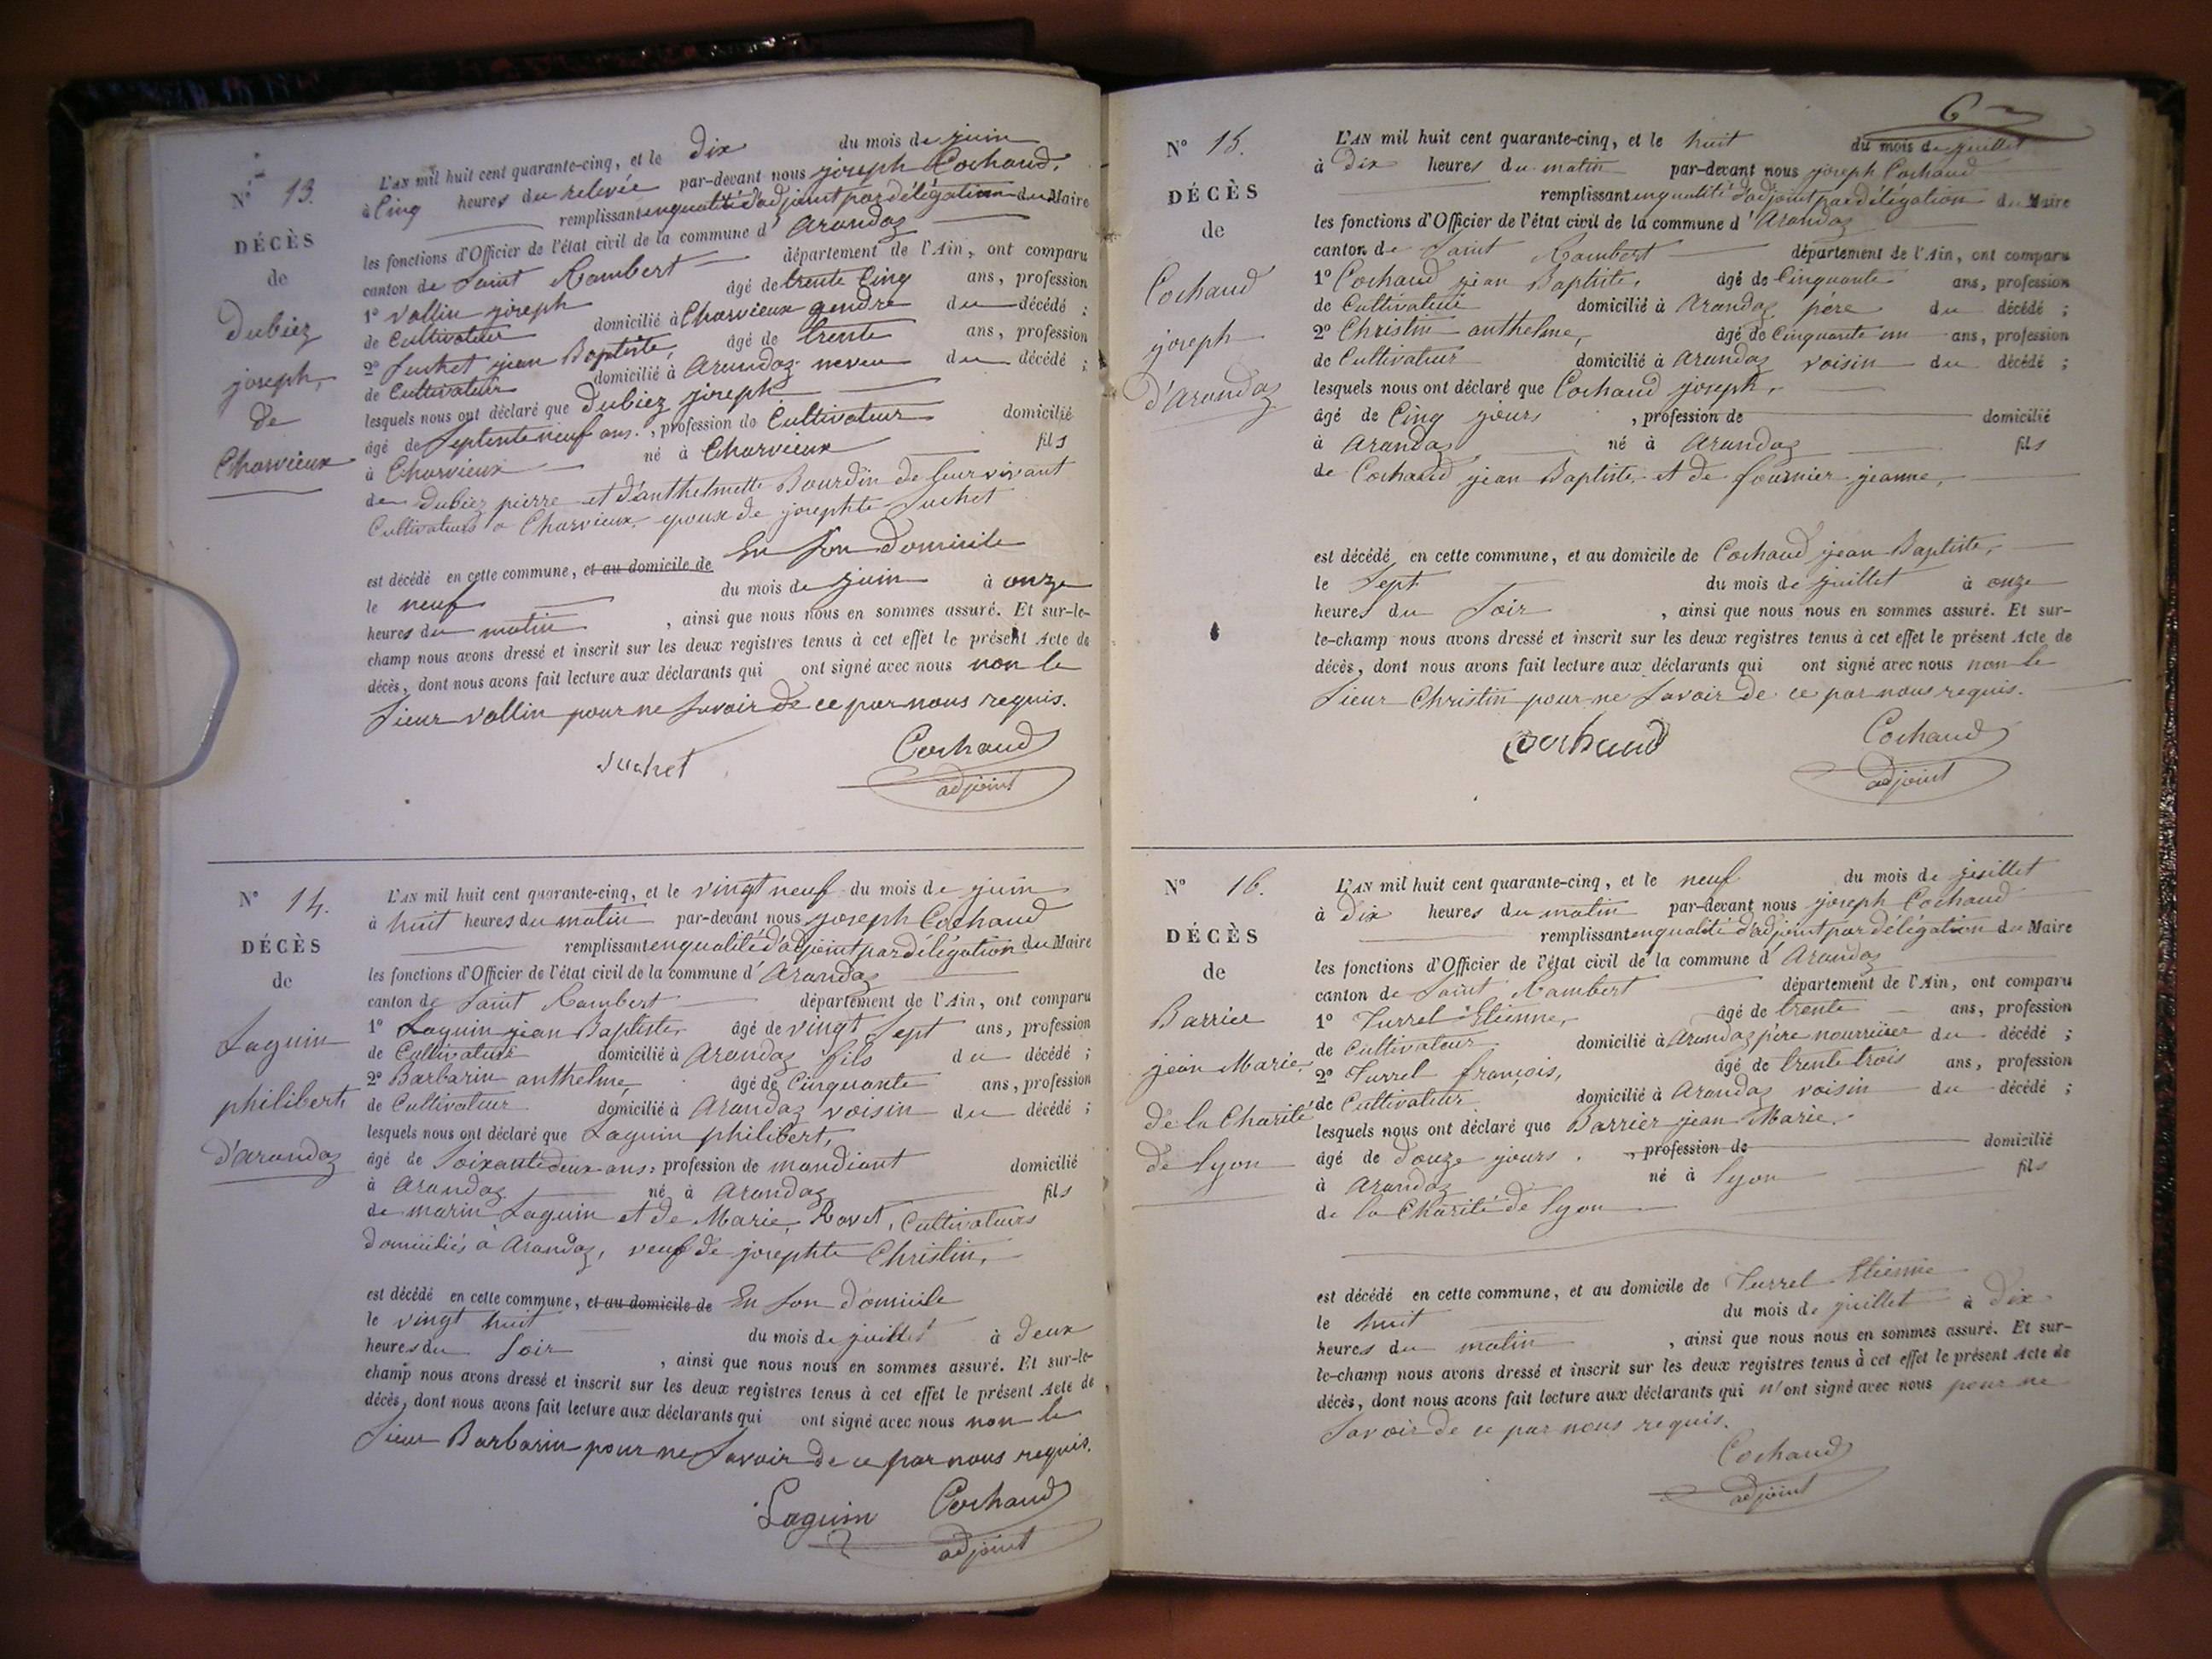 N° 13.
DÉCÈS
de
Dubiez
joseph,
de
Charvieux
L'AN mil huit cent quarante-cinq, et le dix du mois de juin
à Cinq heures du relevée par-devant nous joseph Cochaud,
remplissant en qualité d'adjoint par délégation du Maire
les fonctions d'Officier de l'état civil de la commune d' Arandaz
canton de Saint Rambert département de l'Ain, ont comparu
1° Vallin joseph âgé de trente Cinq ans, profession
de Cultivateur domicilié à Charvieux gendre du décédé ;
2° Suchet jean Baptiste, âgé de trente ans, profession
de Cultivateur domicilié à Arandaz neveu du décédé ;
lesquels nous ont déclaré que Dubiez joseph
âgé de Septente neuf ans. , profession de Cultivateur domicilié
à Charvieux né à Charvieux fils
de Dubiez pierre et d'anthelmette Bourdin de leur vivant
Cultivateurs a Charvieux epoux de josephte Suchet
est décédé en cette commune, et au domicile de En Son Domicile
le neuf du mois de juin à onze
heures du matin , ainsi que nous nous en sommes assuré. Et sur-le-
champ nous avons dressé et inscrit sur les deux registres tenus à cet effet le présent Acte de
décès, dont nous avons fait lecture aux déclarants qui ont signé avec nous non le
Sieur Vallin pour ne Savoir de ce par nous requis.
Suchet Cochaud
adjoint
N° 14.
DÉCÈS
de
Laguin
philibert,
d'arandaz
L'AN mil huit cent quarante-cinq, et le vingt neuf du mois de juin
à huit heures du matin par-devant nous joseph Cochaud
remplissant en qualité d'adjoint par délégation du Maire
les fonctions d'Officier de l'état civil de la commune d' Arandaz
canton de Saint Rambert département de l'Ain, ont comparu
1° Laguin jean Baptiste, âgé de vingt Sept ans, profession
de Cultivateur domicilié à Arandaz fils du décédé ;
2° Barbarin anthelme, âgé de Cinquante ans, profession
de Cultivateur domicilié à Arandaz voisin du décédé ;
lesquels nous ont déclaré que Laguin philibert,
âgé de Soixante deux ans, profession de mandiant domicilié
à Arandaz né à Arandaz fils
de marin Laguin et de Marie Ravet, Cultivateurs
domiciliés a Arandaz, veuf de josephte Christin,
est décédé en cette commune, et au domicile de En Son Domicile
le vingt huit du mois de juillet à deux
heures du Soir , ainsi que nous nous en sommes assuré. Et sur-le-
champ nous avons dressé et inscrit sur les deux registres tenus à cet effet le présent Acte de
décès, dont nous avons fait lecture aux déclarants qui ont signé avec nous non le
Sieur Barbarin pour ne Savoir de ce par nous requis.
Laguin Cochaud
adjoint
6
N° 15.
DÉCÈS
de
Cochaud
joseph
d'Arandaz
L'AN mil huit cent quarante-cinq, et le huit du mois de juillet
à dix heures du matin par-devant nous joseph Cochaud
remplissant en qualité d'adjoint par délégation du Maire
les fonctions d'Officier de l'état civil de la commune d' Arandaz
canton de Saint Rambert département de l'Ain, ont comparu
1° Cochaud jean Baptiste, âgé de Cinquante ans, profession
de Cultivateur domicilié à Arandaz père du décédé ;
2° Christin anthelme, âgé de Cinquante un ans, profession
de Cultivateur domicilié à Arandaz voisin du décédé ;
lesquels nous ont déclaré que Cochaud joseph,
âgé de Cinq jours , profession de domicilié
à Arandaz né à Arandaz fils
de Cochaud jean Baptiste, et de fournier jeanne,
est décédé en cette commune, et au domicile de Cochaud jean Baptiste,
le Sept du mois de juillet à onze
heures du Soir , ainsi que nous nous en sommes assuré. Et sur-
le-champ nous avons dressé et inscrit sur les deux registres tenus à cet effet le présent Acte de
décès, dont nous avons fait lecture aux déclarants qui ont signé avec nous non le
Sieur Christin pour ne Savoir de ce par nous requis.
Cochaud Cochaud
adjoint
N° 16.
DÉCÈS
de
Barrier
jean Marie
de la Charité
de Lyon
L'AN mil huit cent quarante-cinq, et le neuf du mois de juillet
à dix heures du matin par-devant nous joseph Cochaud
remplissant en qualité d'adjoint par délégation du Maire
les fonctions d'Officier de l'état civil de la commune d' Arandaz
canton de Saint Rambert département de l'Ain, ont comparu
1° Turrel Etienne, âgé de trente ans, profession
de Cultivateur domicilié à Arandaz père nourricier du décédé ;
2° Turrel françois, âgé de trente trois ans, profession
de Cultivateur domicilié à Arandaz voisin du décédé ;
lesquels nous ont déclaré que Barrier jean Marie,
âgé de douze jours . , profession de domicilié
à Arandaz né à Lyon fils
de la Charité de Lyon
est décédé en cette commune, et au domicile de Turrel Etienne
le huit du mois de juillet à dix
heures du matin , ainsi que nous nous en sommes assuré. Et sur-
le-champ nous avons dressé et inscrit sur les deux registres tenus à cet effet le présent Acte de
décès, dont nous avons fait lecture aux déclarants qui n'ont signé avec nous pour ne
Savoir de ce par nous requis.
Cochaud
adjoint